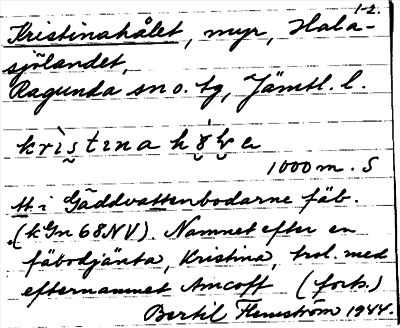 1-2.
Kristinahålet, myr, Hala-
sjölandet,
Ragunda sn o. tg, Jämtl. l.
kristina
1000 m. S
tt. i Gäddvattenbodarne fäb.
(kGn 68NV). Namnet efter en
fäbodjänta, Kristina, trol. med
efternamnet Amcoff (forts.)
Bertil Flemström 1944.